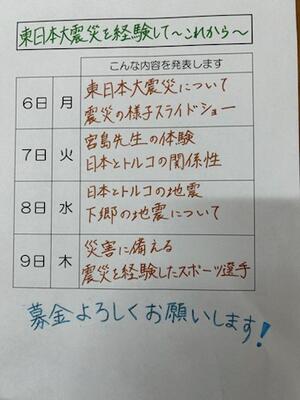 東日本大震災を経験して～これから～
こんな内容を発表します
6日 月 東日本大震災について
震災の様子スライドショー
7日 火 宮島先生の体験
日本とトルコの関係性
8日 水 日本とトルコの地震
下郷の地震について
9日 木 災害に備える
震災を経験したスポーツ選手
募金よろしくお願いします!